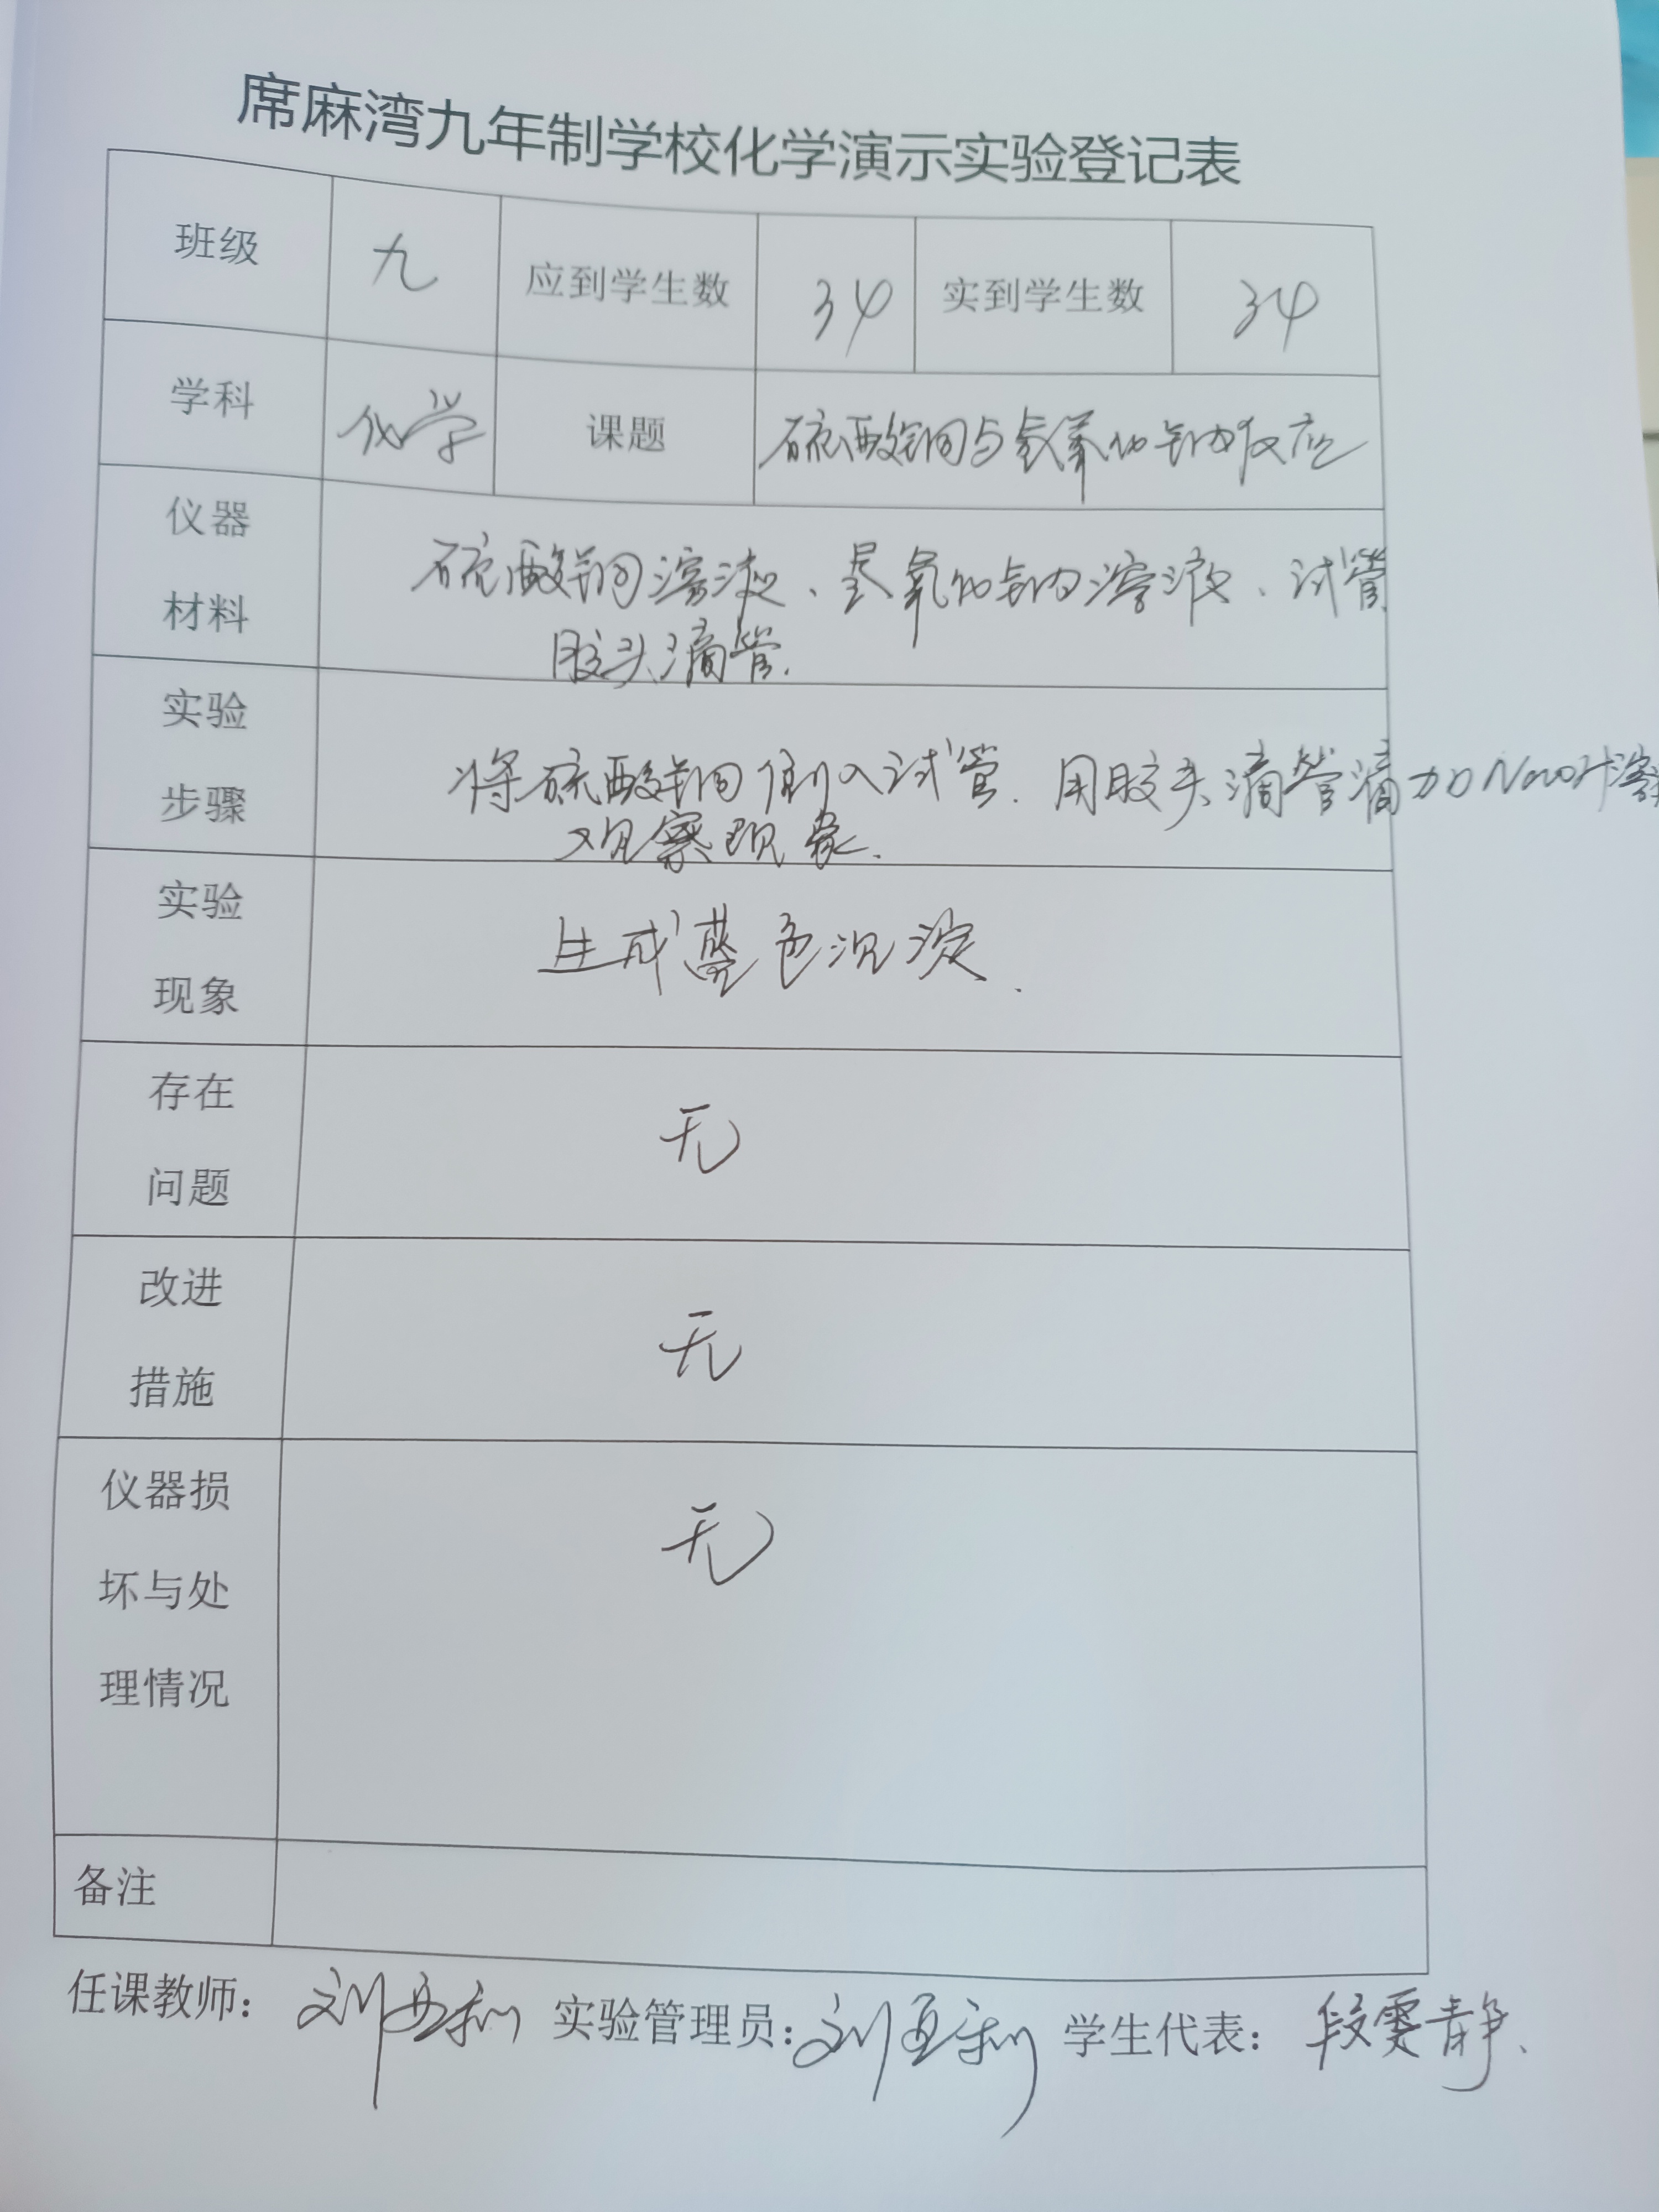 席麻湾九年制学校化学演示实验登记表
班级 九 应到学生数 34 实到学生数 34
学科 化学 课题 硫酸铜与氢氧化钠反应
仪器
材料
硫酸铜溶液、氢氧化钠溶液、试管
胶头滴管.
实验
步骤
将硫酸铜倒入试管.用胶头滴管滴加NaOH溶
观察现象.
实验
现象
生成蓝色沉淀.
存在
问题
无
改进
措施
无
仪器损
坏与处
理情况
无
备注
任课教师: 刘亚利 实验管理员: 刘亚利 学生代表: 段雯静